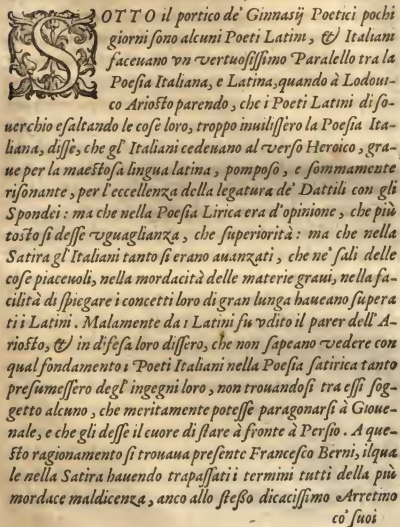 SOTTO il portico de' Ginnasij Poetici pochi
giorni sono alcuni Poeti Latini, & Italiani
faceuano vn vertuosissimo Paralello tra la
Poesia Italiana, e Latina, quando à Lodoui-
co Ariosto parendo, che i Poeti Latini di so-
uerchio esaltando le cose loro, troppo inuilissero la Poesia Ita-
liana, disse, che gl' Italiani cedeuano al verso Heroico, gra-
ue per la maestosa lingua latina, pomposo, e sommamente
risonante, per l'eccellenza della legatura de' Dattili con gli
Spondei : ma che nella Poesia Lirica era d'opinione, che più
tosto si desse vguaglianza, che superiorità : ma che nella
Satira gl' Italiani tanto si erano auanzati, che ne' sali delle
cose piaceuoli, nella mordacità delle materie graui, nella fa-
cilità di spiegare i concetti loro di gran lunga haueano supera
ti i Latini. Malamente da i Latini fu vdito il parer dell' A-
riosto, & in difesa loro dissero, che non sapeano vedere con
qual fondamento i Poeti Italiani nella Poesia satirica tanto
presumessero degl' ingegni loro, non trouandosi tra essi sog-
getto alcuno, che meritamente potesse paragonarsi à Gioue-
nale, e che gli desse il cuore di stare à fronte à Persio. A que-
sto ragionamento si trouaua presente Francesco Berni, il qua
le nella Satira hauendo trapassati i termini tutti della più
mordace maldicenza, anco allo stesso dicacissimo Arretino
co' suoi